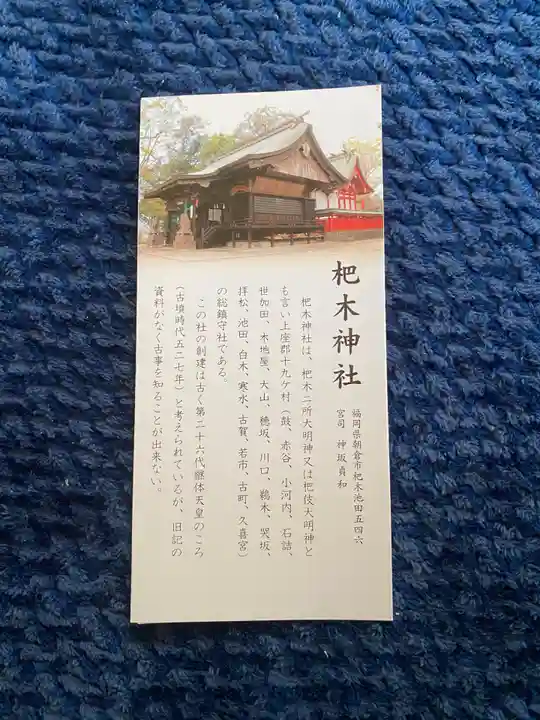 杷木神社
福岡県朝倉市杷木池田五四六
宮司　神坂貞和
杷木神社は、杷木二所大明神又は杷伎大明神と
も言い上座郡十九ケ村（鼓、赤谷、小河内、石詰、
世加田、木地屋、大山、穂坂、川口、鵜木、哭坂、
拝松、池田、白木、寒水、古賀、若市、古町、久喜宮）
の総鎮守社である。
この社の創建は古く第二十六代継体天皇のころ
（古墳時代五二七年）と考えられているが、旧記の
資料がなく古事を知ることが出来ない。